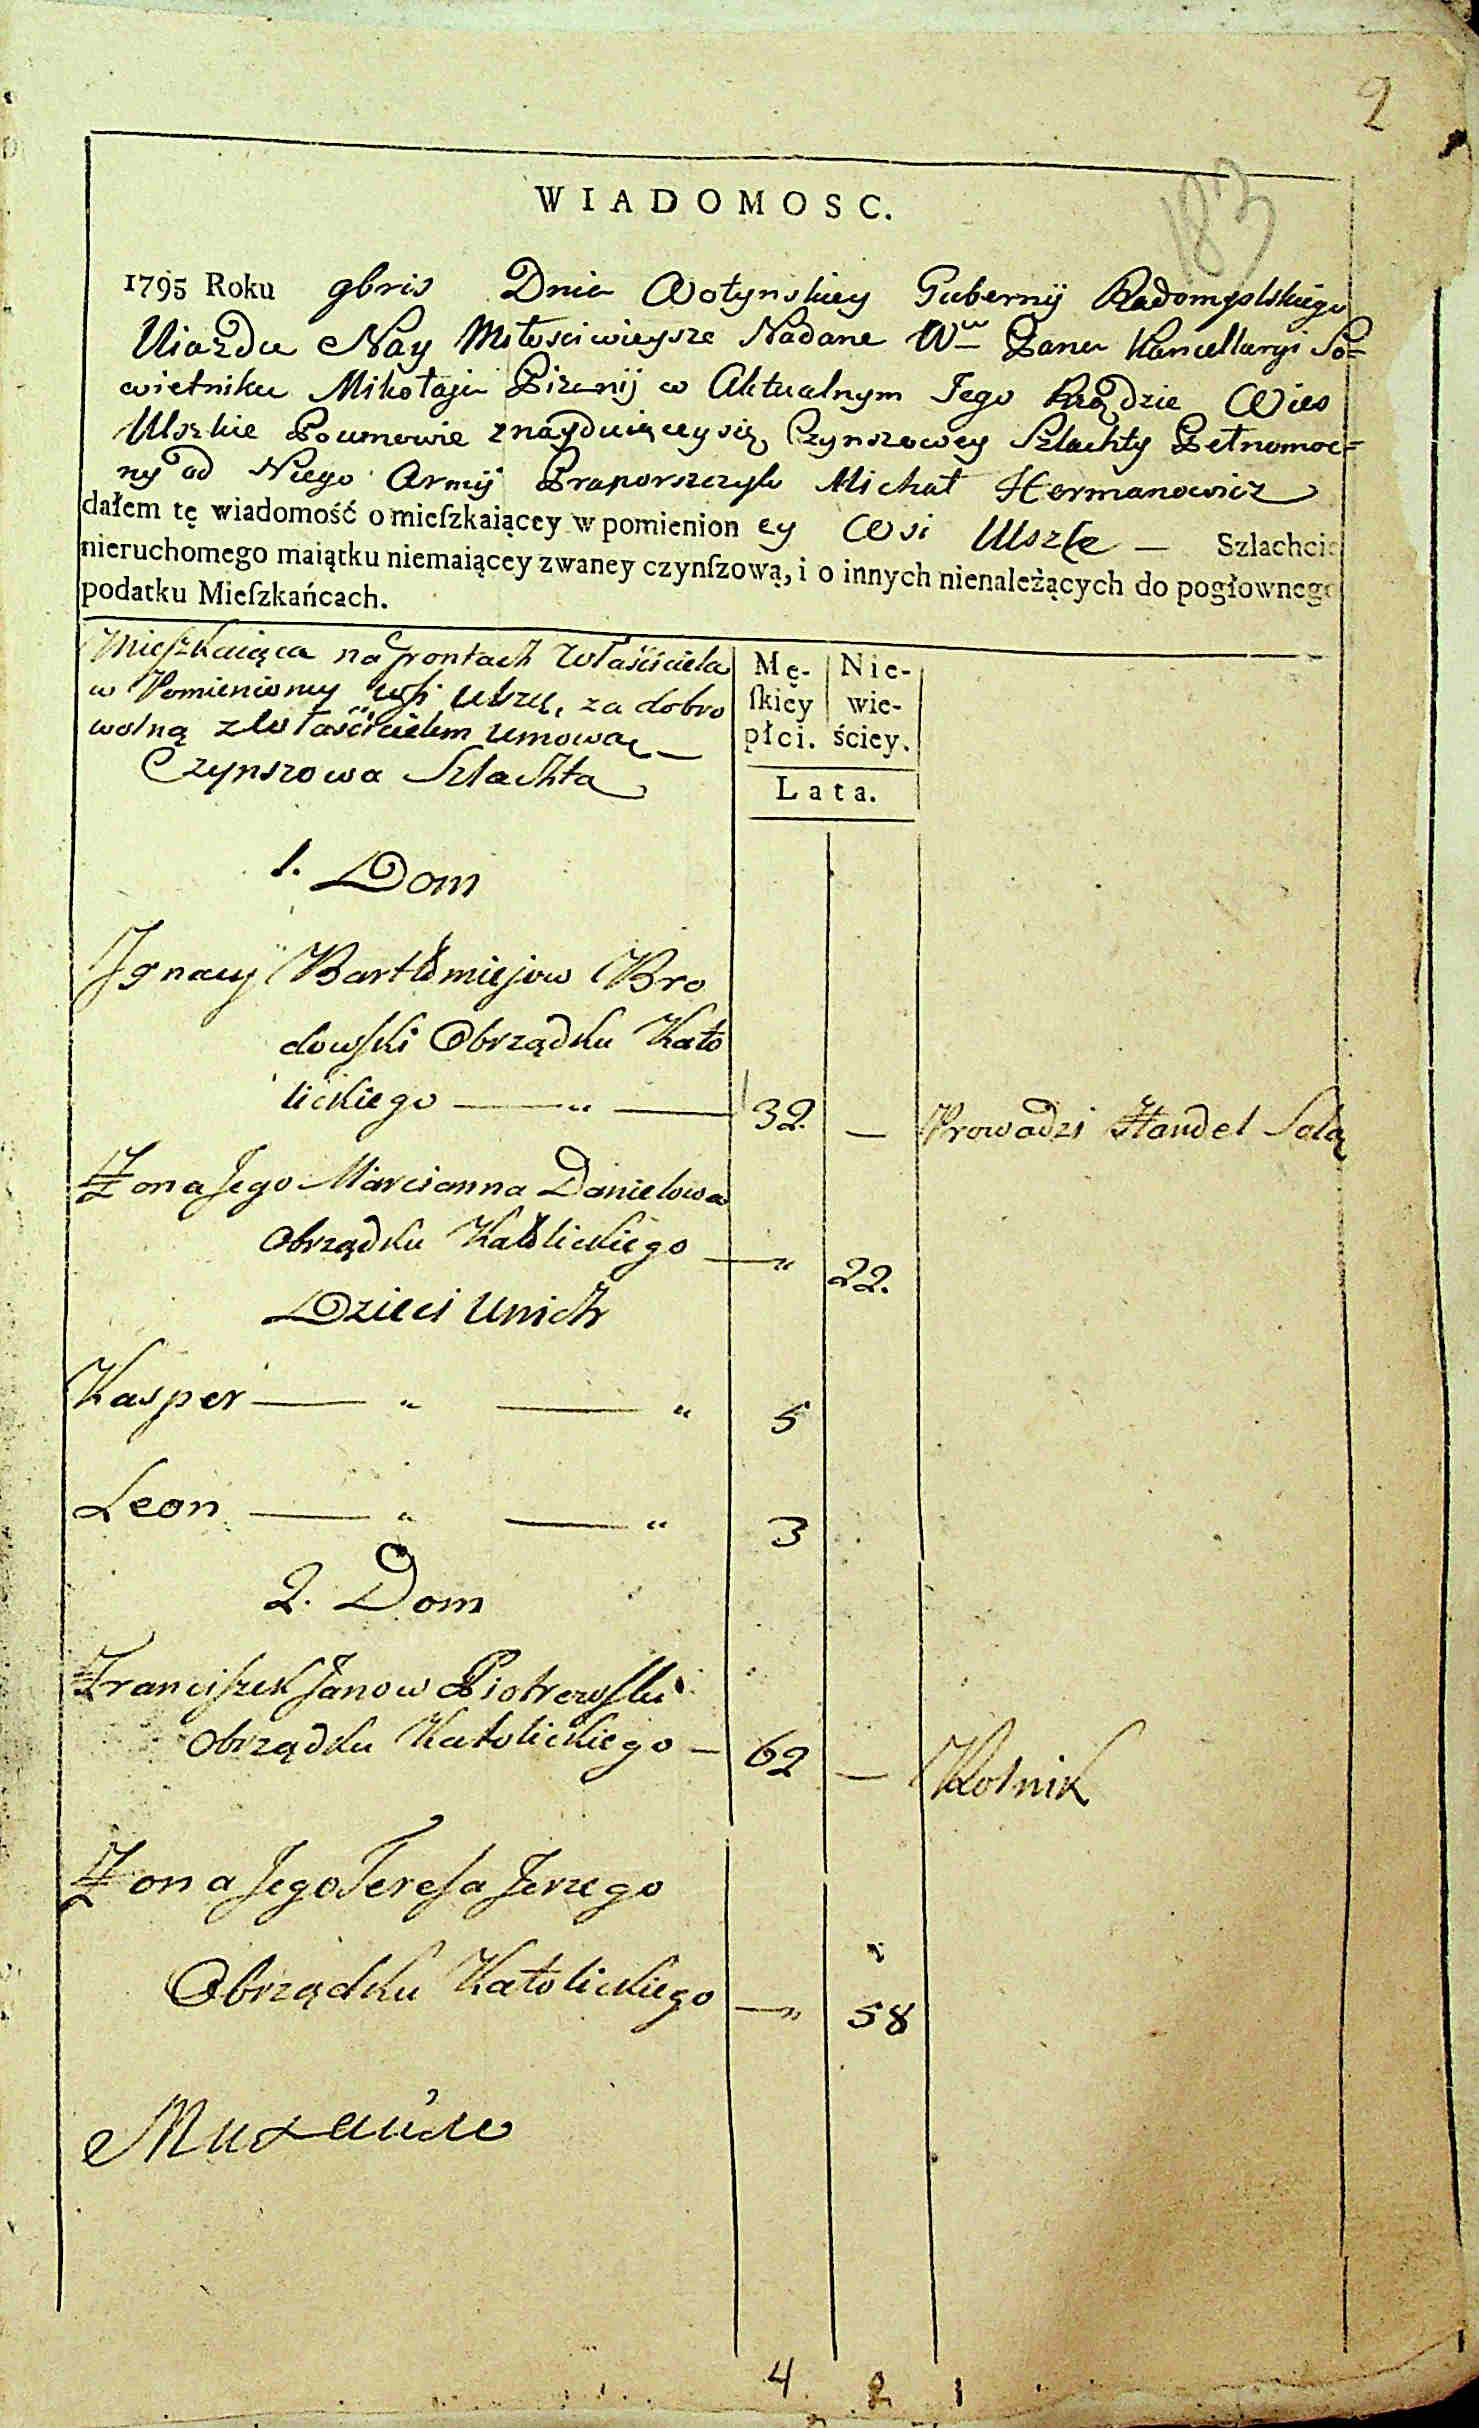 2
183
WIADOMOSC.
1795 Roku 9bris Dnia Wołynskiey Gubernij Radomyslskiego
Uiazdu Nay Miłosciwieysze Nadane Wu Panu Kancellaryi So=
wietniku Mikołaju w Aktualnym Jego Rządzie Wies
Uszkie Poumowie znayduiącey się Czynszowey Szlachty Pełnomoc=
ny od Niego Armij Praporszczyk Michał Hermanowicz
dałem tę wiadomość o mieſzkaiącey w pomienion ey Wsi Uszke — Szlachcie
nieruchomego maiątku niemaiącey zwaney czynſzową, i o innych nienależących do pogłownego
podatku Mieſzkańcach.
Mieſzkaiąca na Grontach Właściciela
w Pomienioney wsi za dobro
wolną z Właścicielem umową —
Czynszowa Szlachta
Mę- Nie-
ſkiey wie-
płci. ściey.
Lata.
1. Dom
Jgnacy Bartłomiejow Bro
dowſki Obrządku Kato
lickiego — „ — 32. — Prowadzi Handel Solą
Żona Jego Marcianna Danielowa
Obrządku Katolickiego — „ 22.
Dzieci Unich
Kasper — „ — „ 5
Leon — „ — „ 3
2. Dom
Franciſzek Janow Piotrowſki
Obrządku Katolickiego — 62 — Rolnik
Żona Jego Tereſa Jerzego
Obrządku Katolickiego — „ 58
Михаила
4 2 1